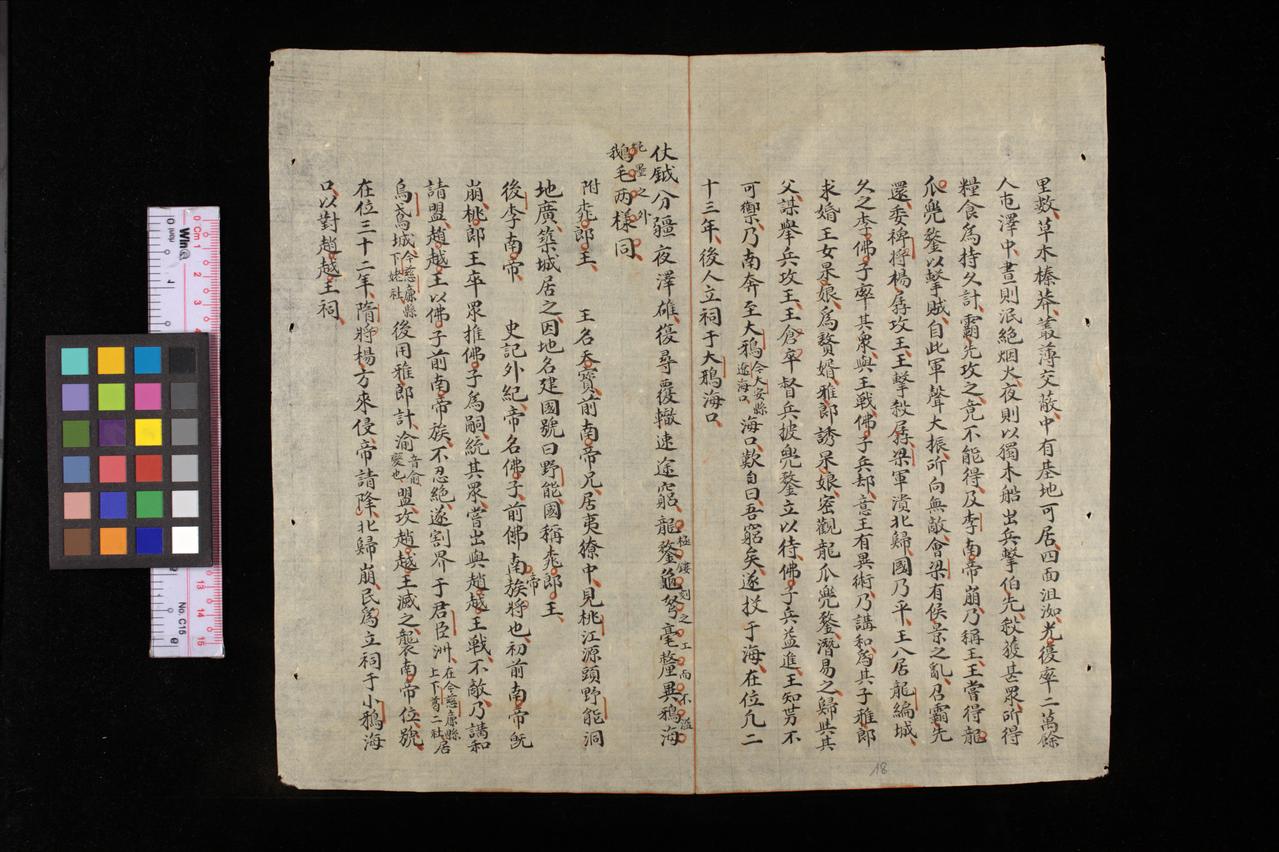 里數草木榛莽叢薄交蔽中有基地可居四面沮洳光復率二萬餘
人屯澤中晝則泯絕烟火夜則以獨木船出兵擊伯先殺獲甚眾所得
糧食為持久計霸先攻之竟不能得及李南帝崩乃稱王王嘗得龍
爪兜鍪以擊賊自此軍聲大振所向無敵會梁有侯景之亂召霸先
還委裨將楊孱攻王王擊殺孱梁軍潰北歸國乃平王入居龍編城
久之李佛子率其眾與王戰佛子兵却意王有異術乃講和為其子雅郎
求婚王女杲娘為贅婿雅郎誘杲娘密觀龍爪兜鍪潛易之歸與其
父謀舉兵攻王王倉卒督兵披兜鍪立以待佛子兵益進王知勢不
可禦乃南奔至大鴉今大安縣遼海口海口歎自曰吾窮矣遂投于海在位凢二
十三年後人立祠于大鴉海口
仗鉞分疆夜澤雄復尋覆轍速途窮龍鍪龜弩毫釐異鴉海
極鏤刻之工而不隘
鵝毛两樣同
能墨之外
附桃郎王 王名天寶前南帝兄居夷獠中見桃江源頭野能洞
地廣築城居之因地名建國號曰野能國稱桃郎王
後李南帝 史記外紀帝名佛子前佛南帝族將也初前南帝既
崩桃郎王卒眾推佛子為嗣統其眾嘗出與趙越王戰不敵乃講和
請盟趙越王以佛子前南帝族不忍絕遂割界于君臣洲在今慈廉縣上下葛二社居
烏鳶城今慈廉縣下姥社後用雅郎計渝音俞變也盟攻趙越王滅之襲南帝位號
在位三十二年隋將楊方來侵帝請降北歸崩民為立祠于小鴉海
口以對趙越王祠
18